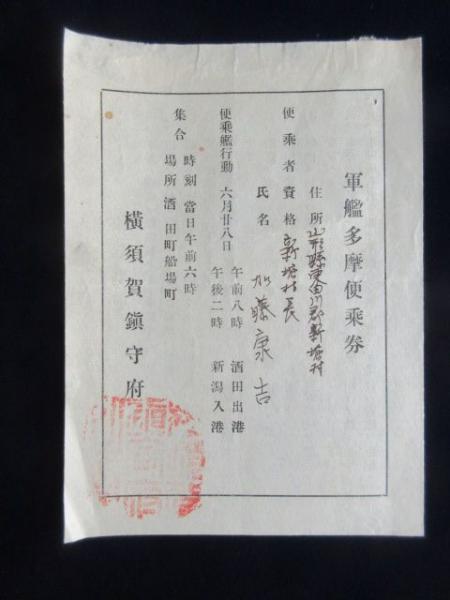 軍艦多摩便乘券
住所 山形縣東田川郡新堀村
便乘者資格 新堀村長
氏名 加藤康吉
便乘艦行動 六月廿八日 午前八時 酒田出港
午後二時 新潟入港
集合 時刻 當日午前六時
場所 酒田町船場町
橫須賀鎭守府